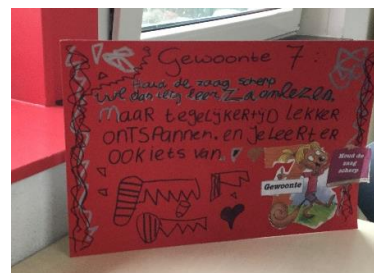 Gewoonte 7:
Houd de zaag scherp
lezen.
MAAR tegelijkertijd lekker
ontspannen. en je leert er
ook iets van.
Gewoonte
Houd de
zaag
scherp